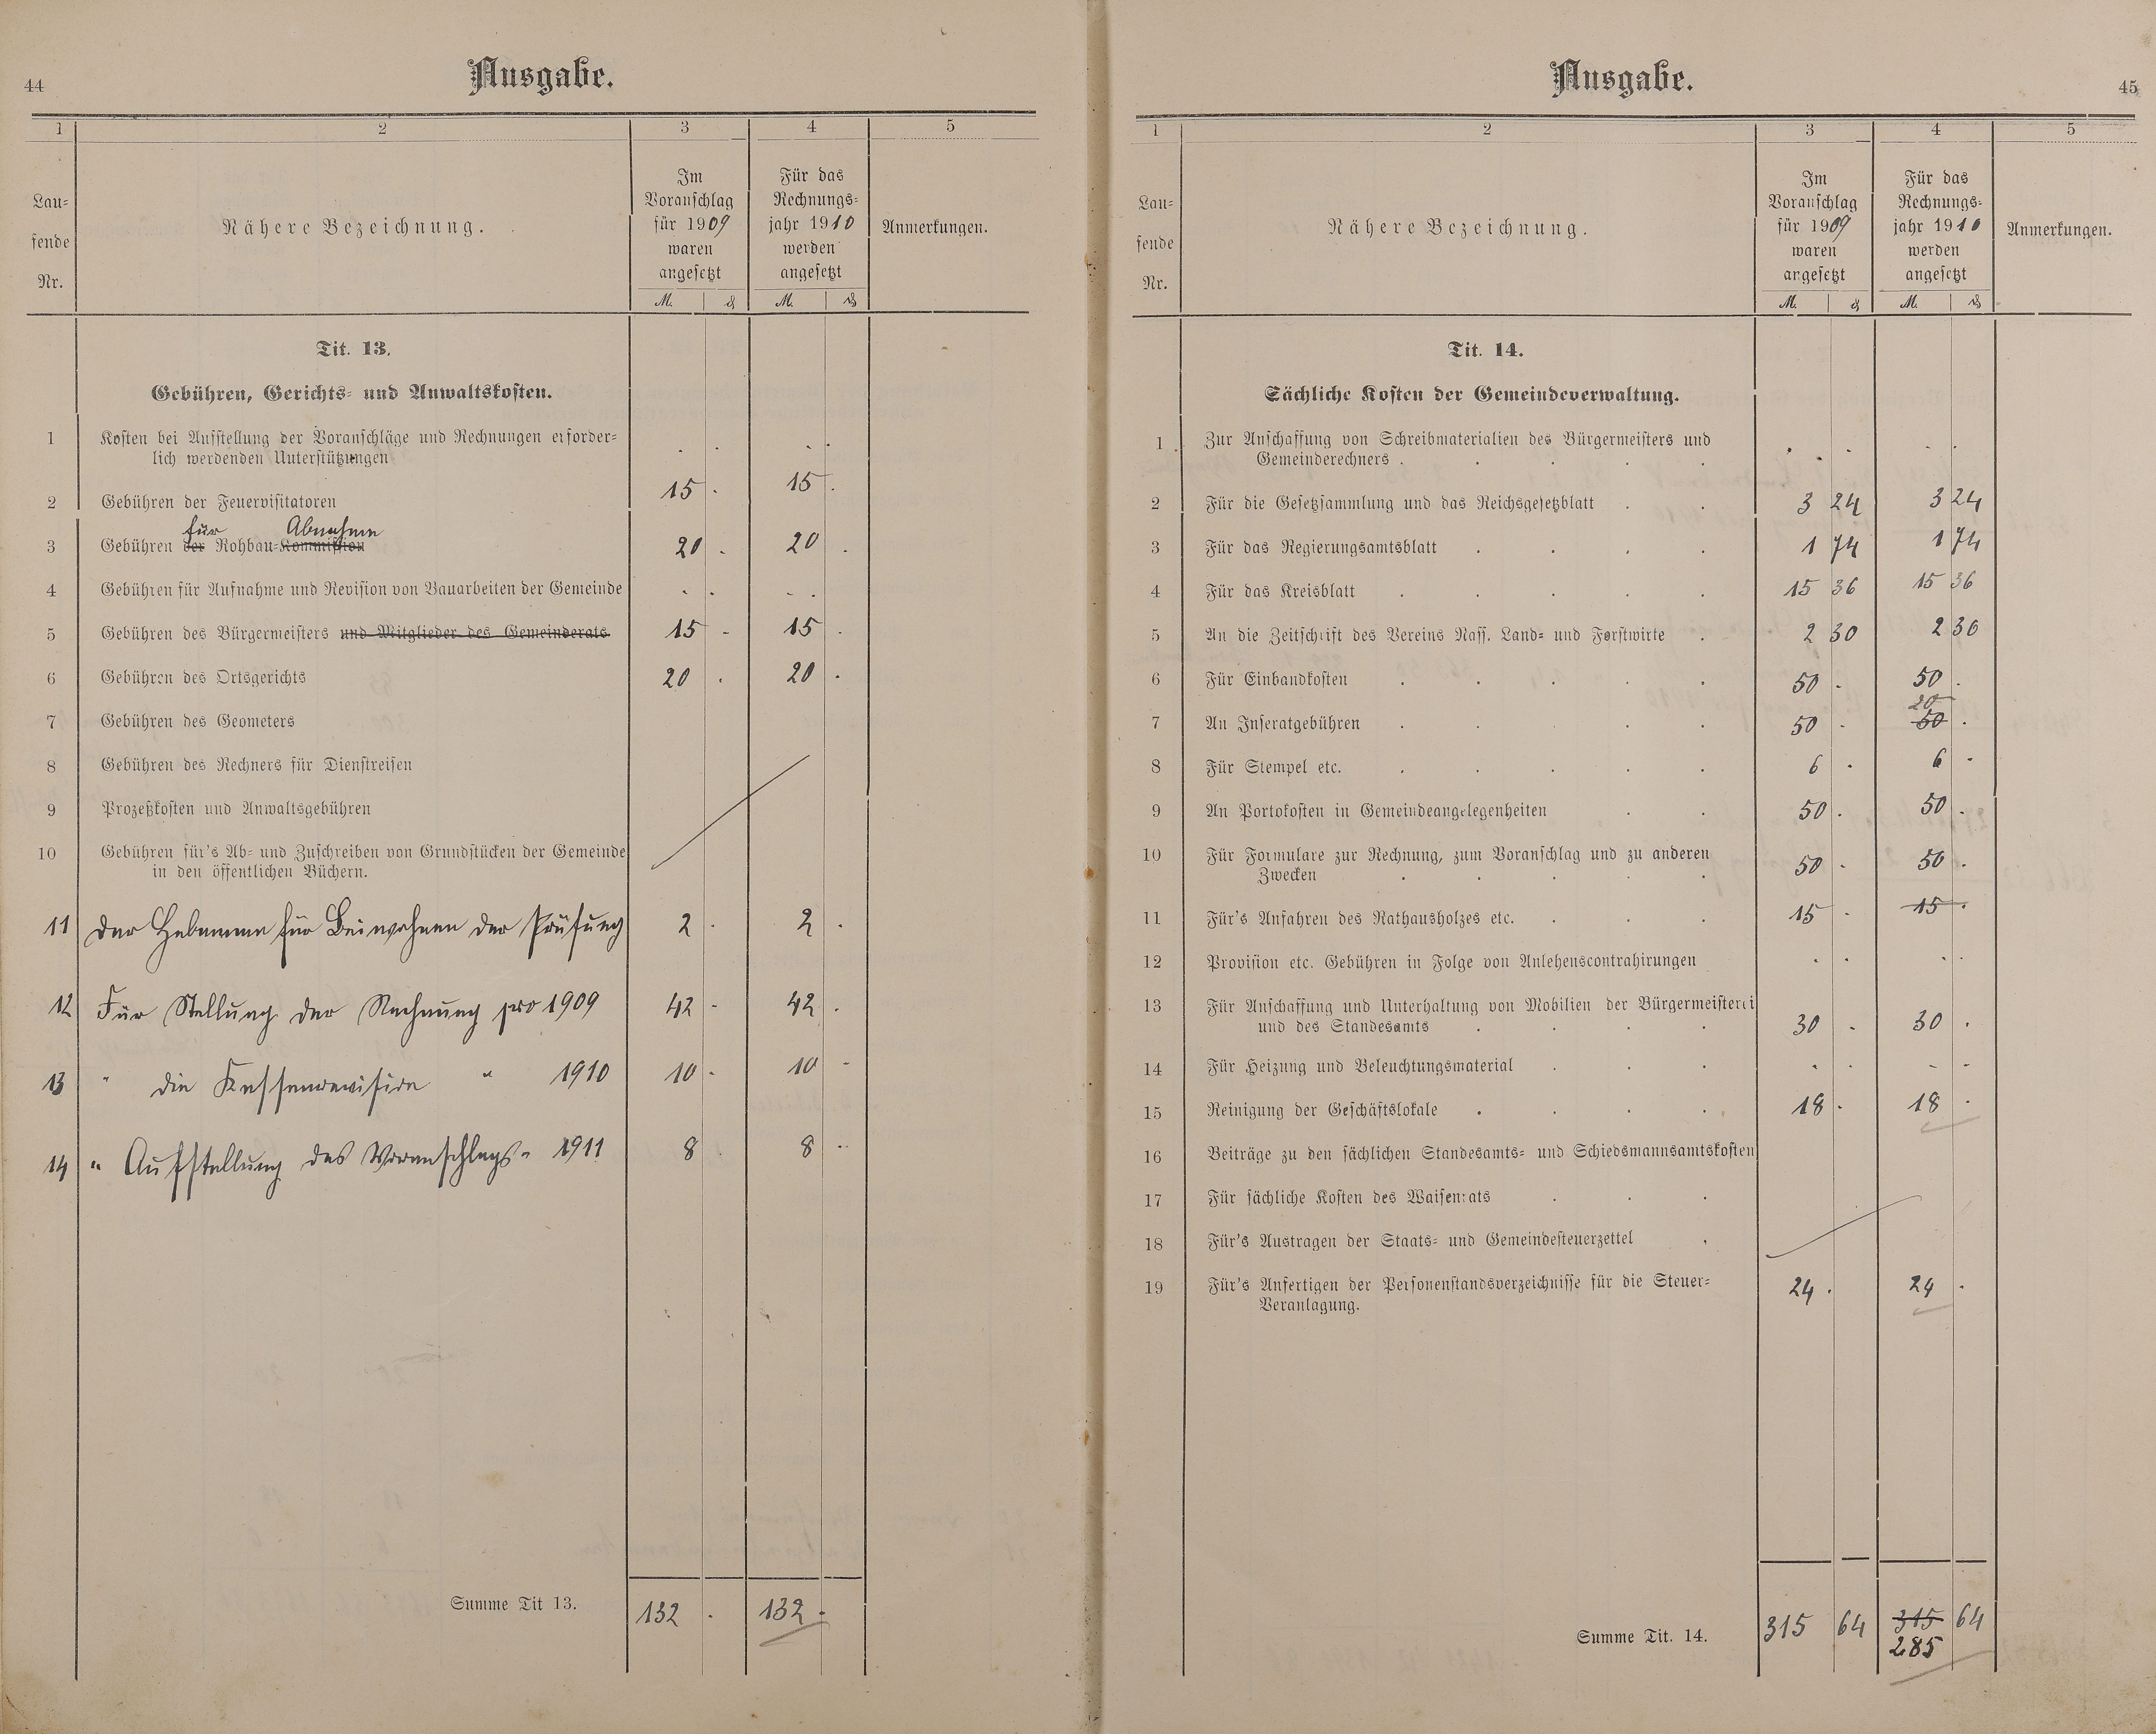 44
Ausgabe.
1 2 3 4 5
Lau-
fende
Nr.
Nähere Bezeichnung.
Im
Voranschlag
für 1909
waren
angesetzt
M. ₰
Für das
Rechnungs-
jahr 1910
werden
angesetzt
M. ₰
Anmerkungen.
Tit. 13.
Gebühren, Gerichts- und Anwaltskosten.
1 Kosten bei Aufstellung der Voranschläge und Rechnungen erforder-
lich werdenden Unterstützungen . . . .
2 Gebühren der Feuervisitatoren 15 . 15 .
für Abnahme
3 Gebühren der Rohbau-Kommission 20 . 20 .
4 Gebühren für Aufnahme und Revision von Bauarbeiten der Gemeinde . . - .
5 Gebühren des Bürgermeisters und Mitglieder des Gemeinderats 15 - 15 .
6 Gebühren des Ortsgerichts 20 . 20 .
7 Gebühren des Geometers
8 Gebühren des Rechners für Dienstreisen
9 Prozeßkosten und Anwaltsgebühren
10 Gebühren für's Ab- und Zuschreiben von Grundstücken der Gemeinde
in den öffentlichen Büchern.
11 Der Hebamme für Beiwohnen der Prüfung 2 . 2 .
12 Für Stellung der Rechnung pro 1909 42 - 42 .
13 " die Kassenrevision " 1910 10 - 10 -
14 " Aufstellung des Voranschlags " 1911 8 . 8 -
Summe Tit 13. 132 . 132 -
Ausgabe.
45
1 2 3 4 5
Lau-
fende
Nr.
Nähere Bezeichnung.
Im
Voranschlag
für 1909
waren
angesetzt
M. ₰
Für das
Rechnungs-
jahr 1910
werden
angesetzt
M. ₰
Anmerkungen.
Tit. 14.
Sächliche Kosten der Gemeindeverwaltung.
1 Zur Anschaffung von Schreibmaterialien des Bürgermeisters und
Gemeinderechners . . . . . . . . .
2 Für die Gesetzsammlung und das Reichsgesetzblatt . . 3 24 3 24
3 Für das Regierungsamtsblatt . . . . 1 74 1 74
4 Für das Kreisblatt . . . . . 15 36 15 36
5 An die Zeitschrift des Vereins Nass. Land- und Forstwirte . 2 30 2 30
6 Für Einbandkosten . . . . . 50 - 50 .
20
7 An Inseratgebühren . . . . . 50 - 50 .
8 Für Stempel etc. . . . . . 6 - 6 -
9 An Portokosten in Gemeindeangelegenheiten . . 50 . 50 .
10 Für Formulare zur Rechnung, zum Voranschlag und zu anderen
Zwecken . . . . . 50 - 50 .
11 Für's Anfahren des Rathausholzes etc. . . . 15 - 15 .
12 Provision etc. Gebühren in Folge von Anlehenscontrahirungen . . . .
13 Für Anschaffung und Unterhaltung von Mobilien der Bürgermeisterei
und des Standesamts . . . . 30 - 30 .
14 Für Heizung und Beleuchtungsmaterial . . . . . - -
15 Reinigung der Geschäftslokale . . . . 18 . 18 -
16 Beiträge zu den sächlichen Standesamts- und Schiedsmannsamtskosten
17 Für sächliche Kosten des Waisenrats . . .
18 Für's Austragen der Staats- und Gemeindesteuerzettel .
19 Für's Anfertigen der Personenstandsverzeichnisse für die Steuer-
Veranlagung. 24 . 24 .
Summe Tit. 14. 315 64 315 64
285